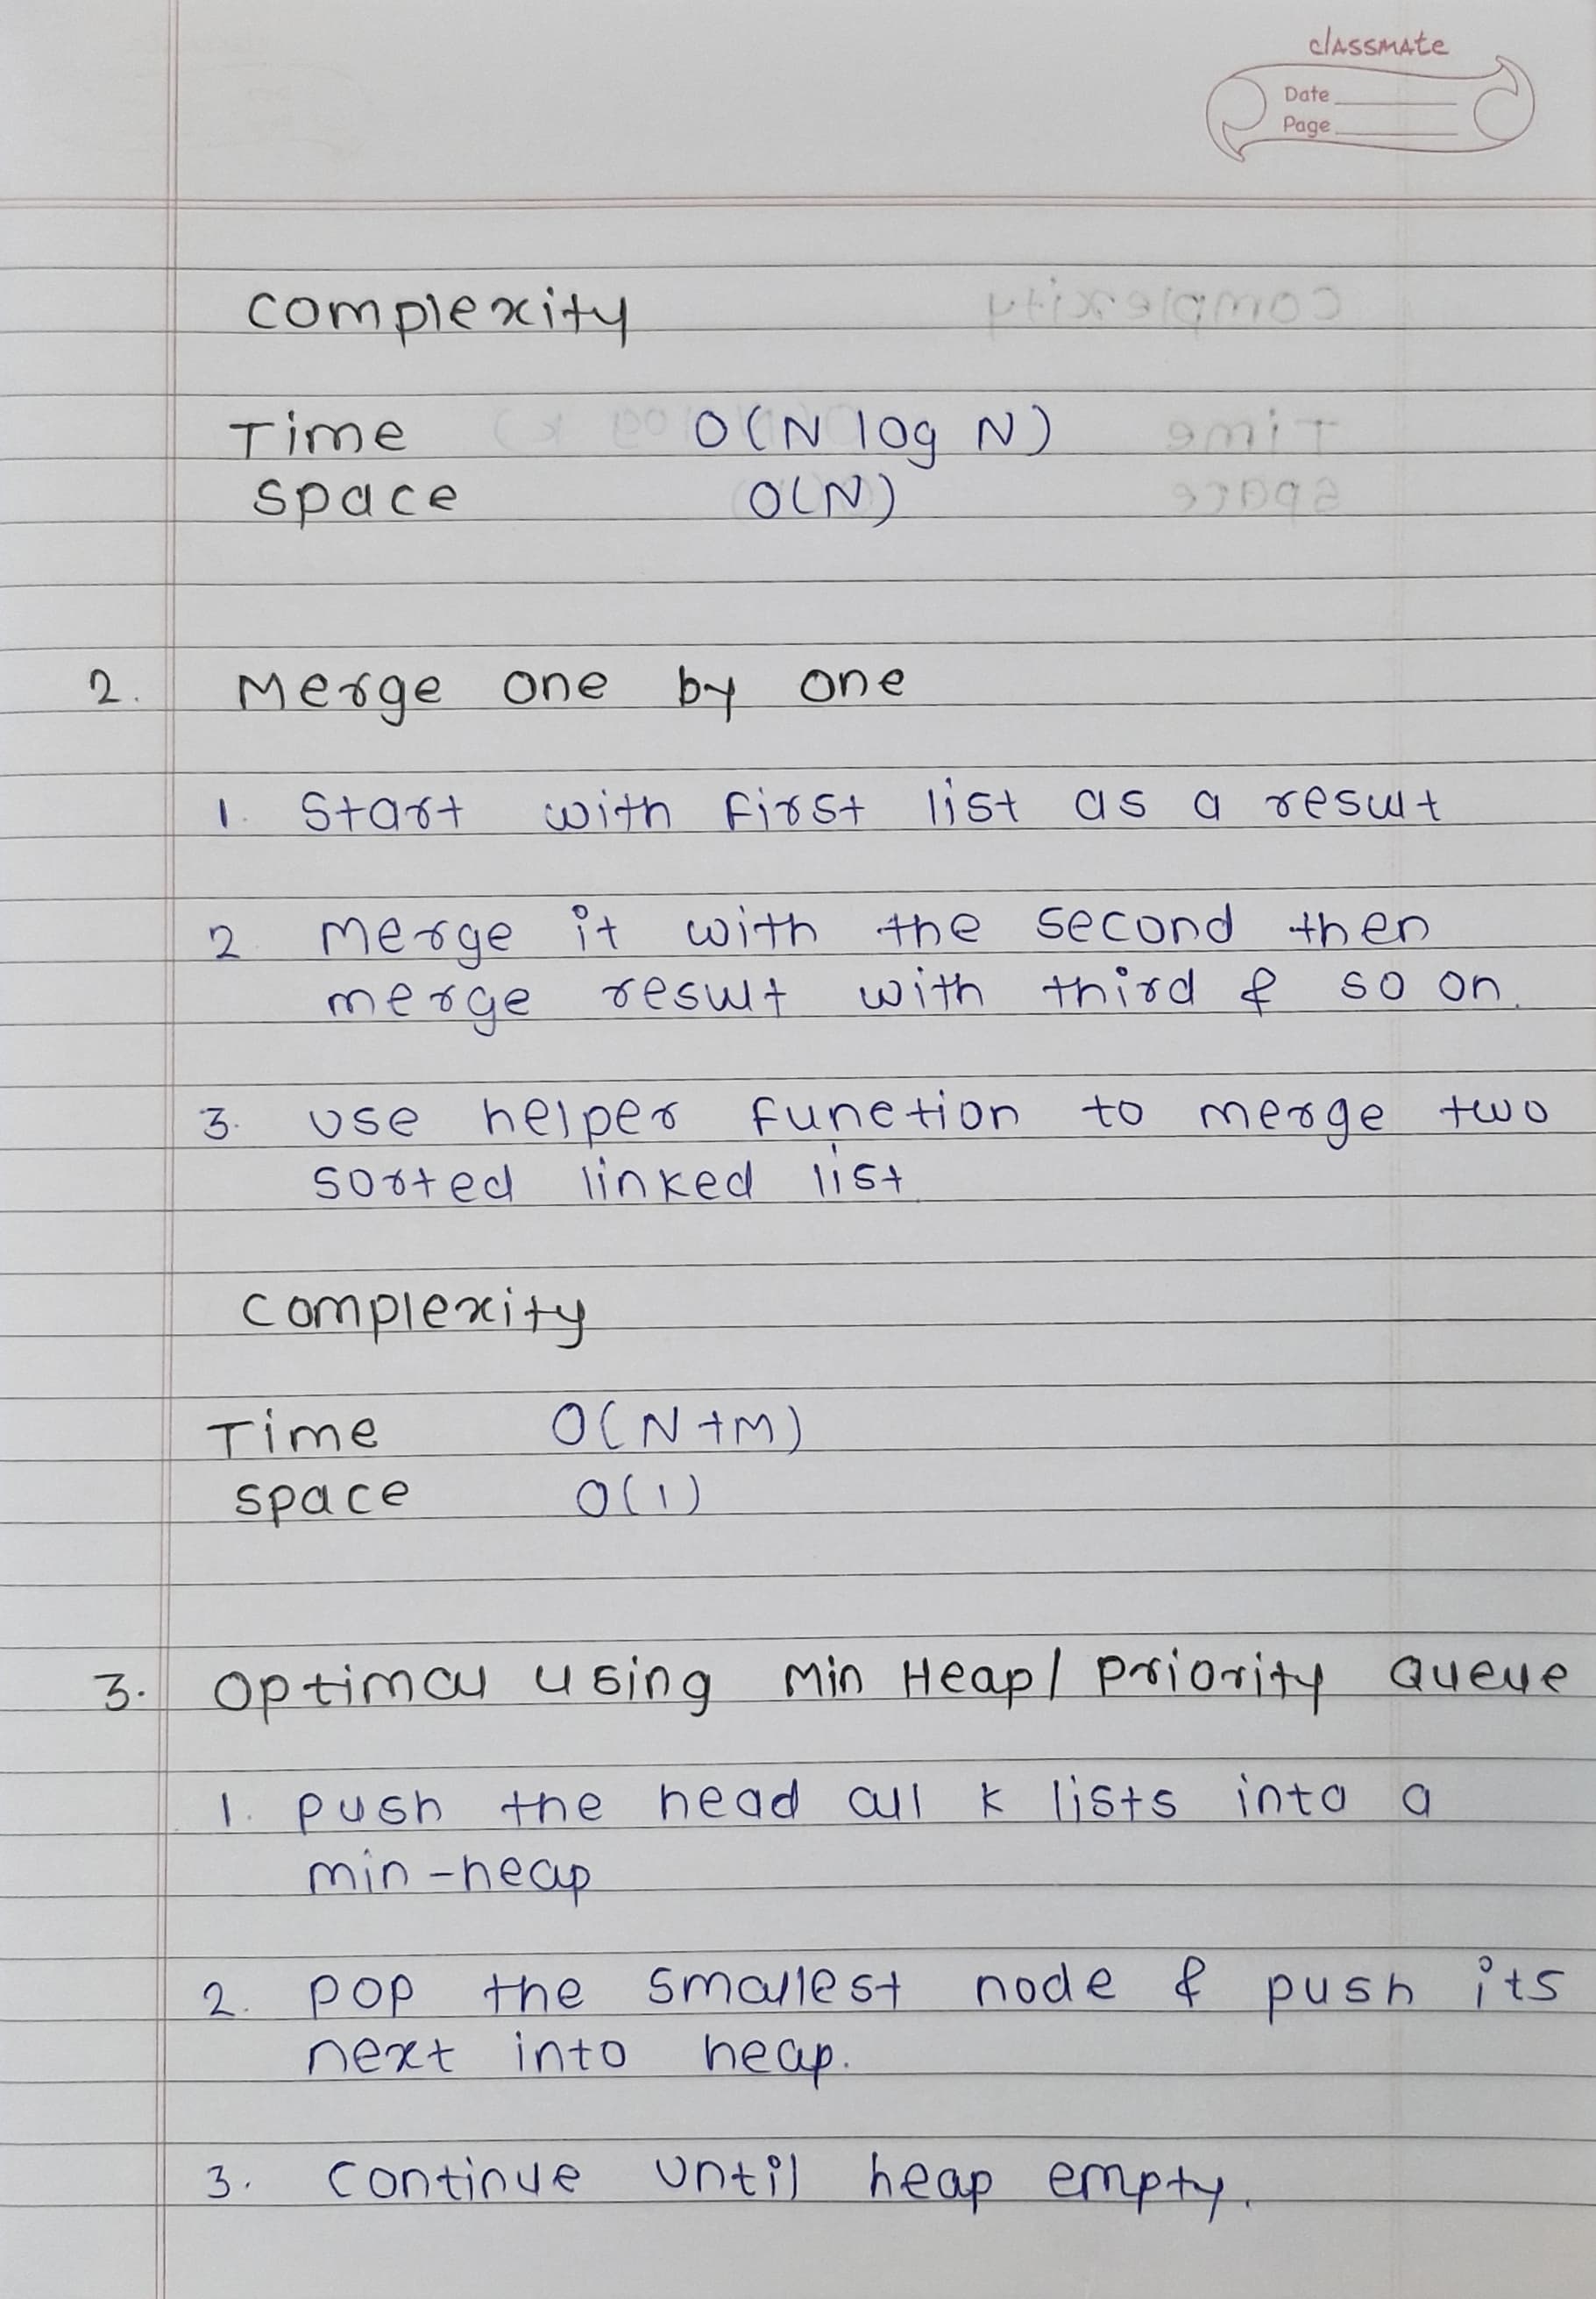 classmate
Date
Page
Complexity
Time O(N log N)
Space O(N)
2. Merge one by one
1. Start with first list as a result
2 merge it with the second then
merge result with third & so on.
3. use helper function to merge two
sorted linked list
Complexity
Time O(N+M)
Space O(1)
3. Optimal using Min Heap/ Priority Queue
1. push the head all k lists into a
min-heap
2. pop the smallest node & push its
next into heap.
3. continue until heap empty.